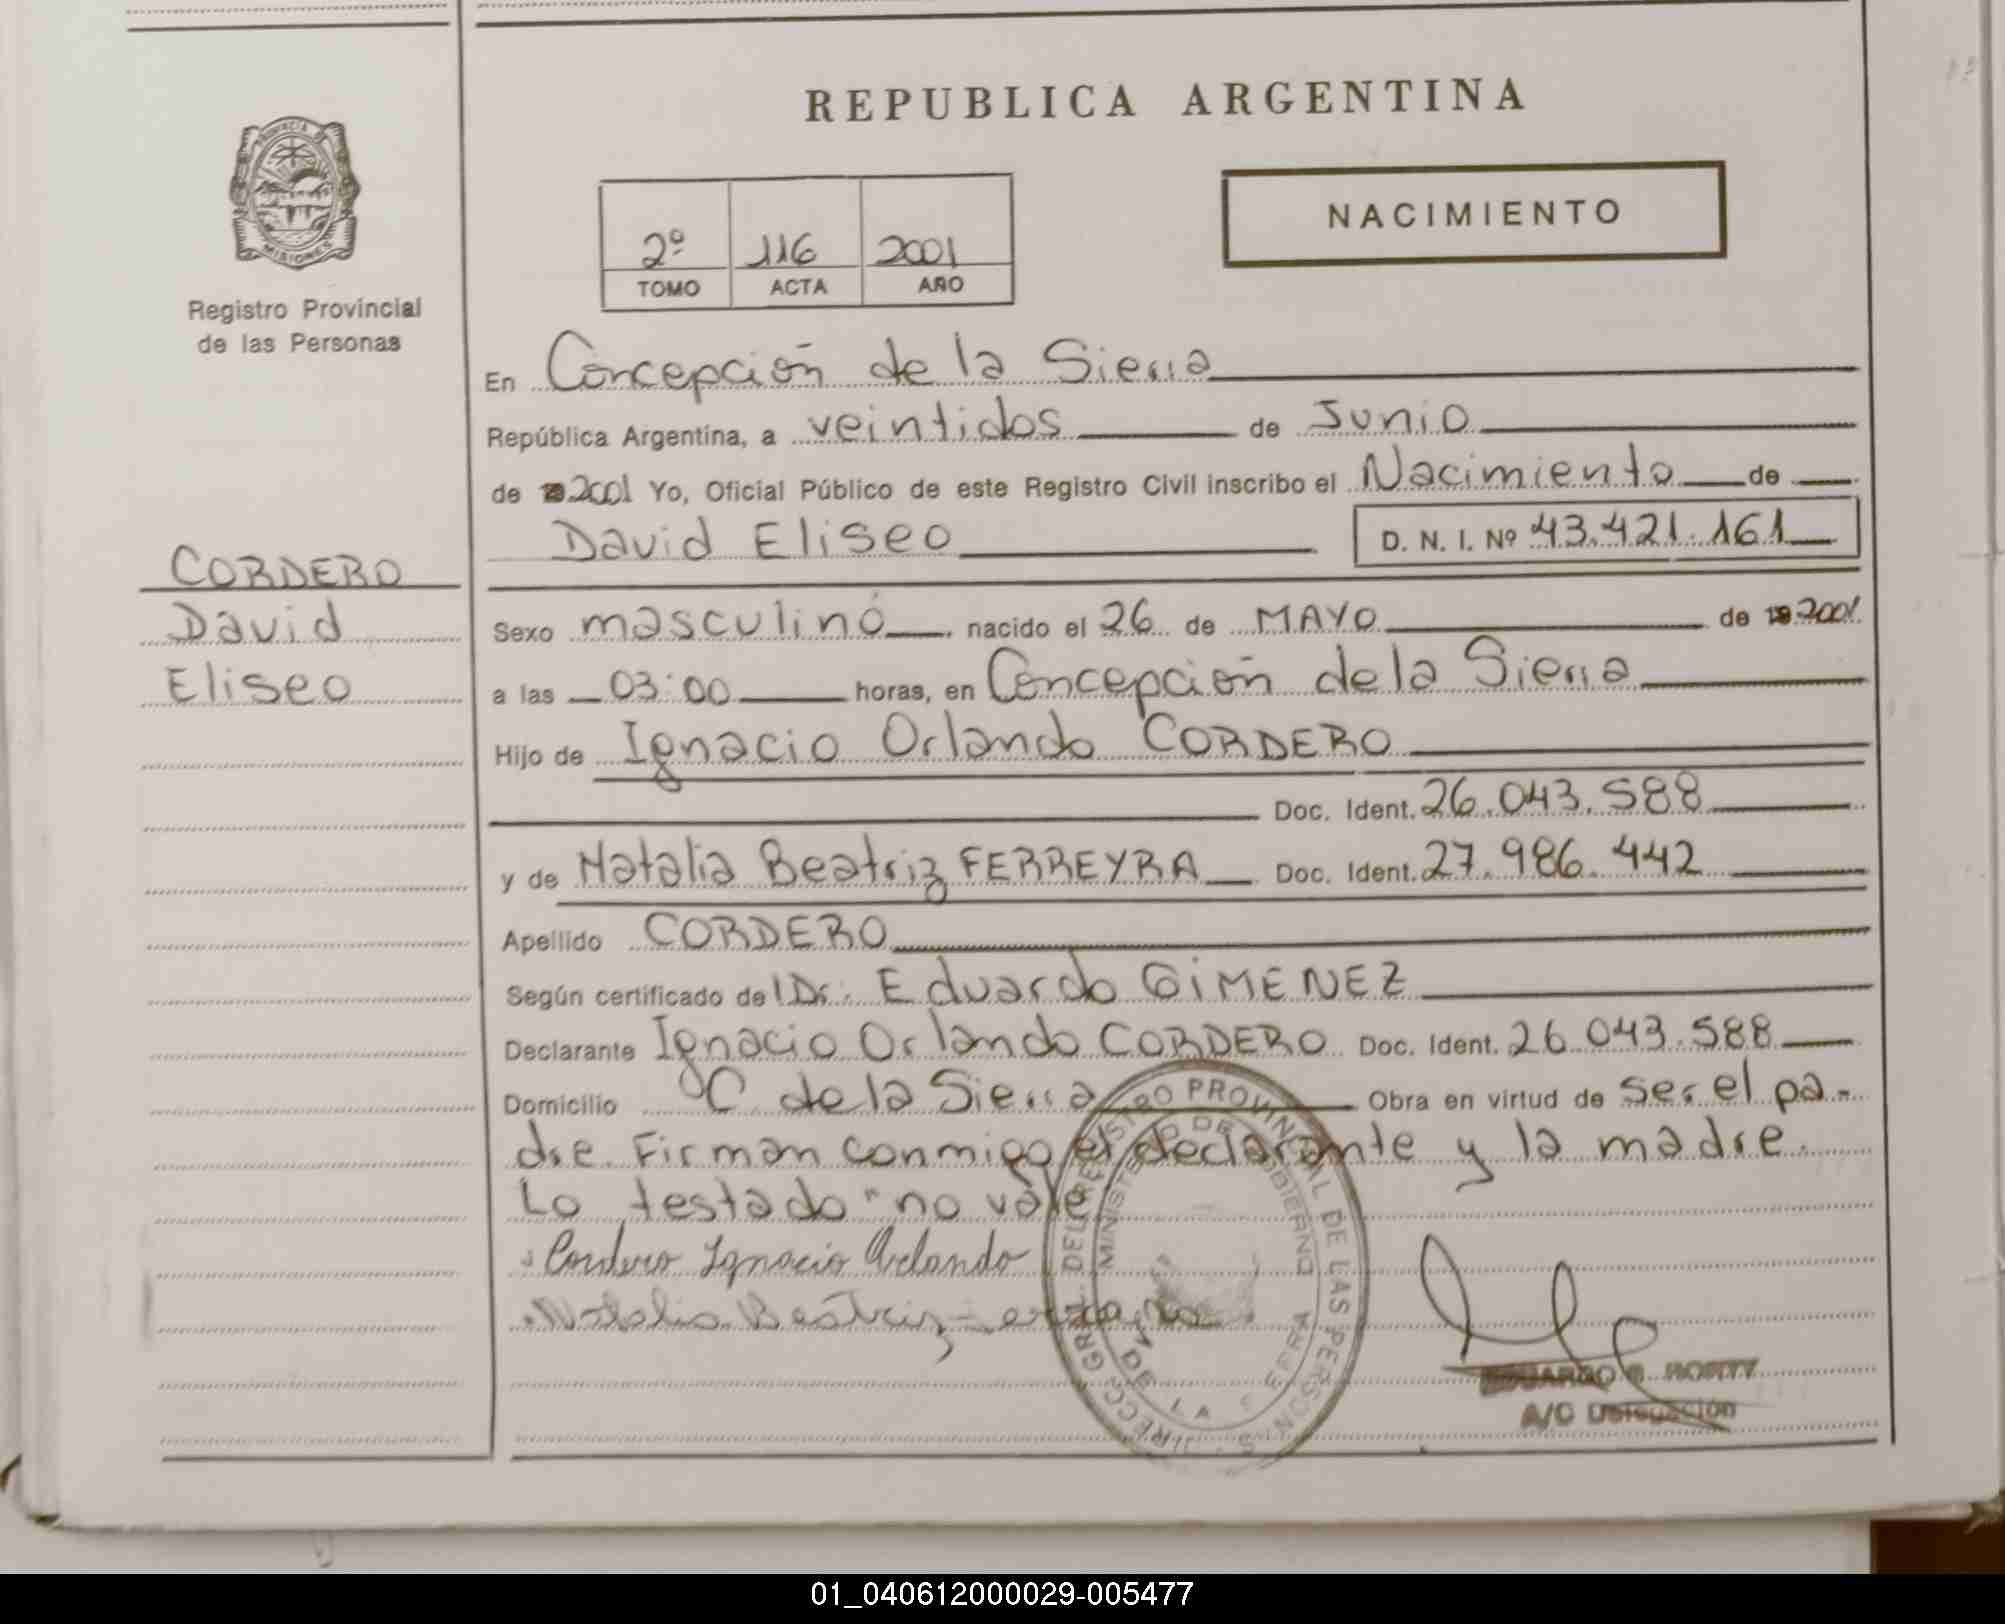 REPUBLICA ARGENTINA
PROVINCIA DE
MISIONES
Registro Provincial
de las Personas
NACIMIENTO
2º 116 2001
TOMO ACTA AÑO
En Concepción de la Sierra
República Argentina, a veintidos de Junio
de 2001 Yo, Oficial Público de este Registro Civil inscribo el Nacimiento de
David Eliseo D. N. I. Nº 43.421.161
CORDERO
David
Eliseo
Sexo masculino, nacido el 26 de MAYO de 2001
a las 03:00 horas, en Concepción de la Sierra
Hijo de Ignacio Orlando CORDERO
Doc. Ident. 26.043.588
y de Natalia Beatriz FERREYRA Doc. Ident. 27.986.442
Apellido CORDERO
Según certificado del Dr. Eduardo GIMENEZ
Declarante Ignacio Orlando CORDERO Doc. Ident. 26.043.588
Domicilio C. de la Sierra Obra en virtud de ser el pa-
dre. Firman conmigo el declarante y la madre.
Lo testado "no vale
Cordero Ignacio Orlando
Natalia Beatriz
REGISTRO PROVINCIAL DE LAS PERSONAS
MINISTERIO DE GOBIERNO
DE LA SIERRA
A/C Delegación
01_040612000029-005477